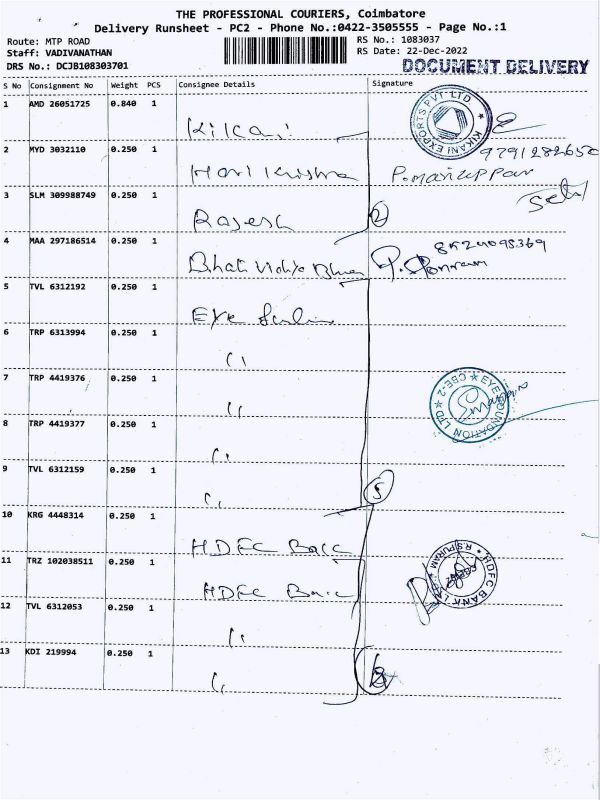 THE PROFESSIONAL COURIERS, Coimbatore
Delivery Runsheet - PC2 - Phone No.:0422-3505555 - Page No.:1
Route: MTP ROAD
RS No.: 1083037
Staff: VADIVANATHAN
RS Date: 22-Dec-2022
DRS No.: DCJB108303701
DOCUMENT DELIVERY
S No Consignment No Weight PCS Consignee Details Signature
1 AMD 26051725 0.840 1
KIKANI EXPORTS PVT LTD
9791282650
2 MYD 3032110 0.250 1 Hari Krishna P. Mariappan
3 SLM 309988749 0.250 1 Rajesh
2
8524098369
4 MAA 297186514 0.250 1
5 TVL 6312192 0.250 1 Eye
6 TRP 6313994 0.250 1 "
7 TRP 4419376 0.250 1 "
EYE FOUNDATION LTD CBE-2
8 TRP 4419377 0.250 1 "
9 TVL 6312159 0.250 1 "
5
10 KRG 4448314 0.250 1 HDFC
11 TRZ 102038511 0.250 1 HDFC
HDFC BANK LTD R.S.PURAM
12 TVL 6312053 0.250 1 "
13 KDI 219994 0.250 1 "